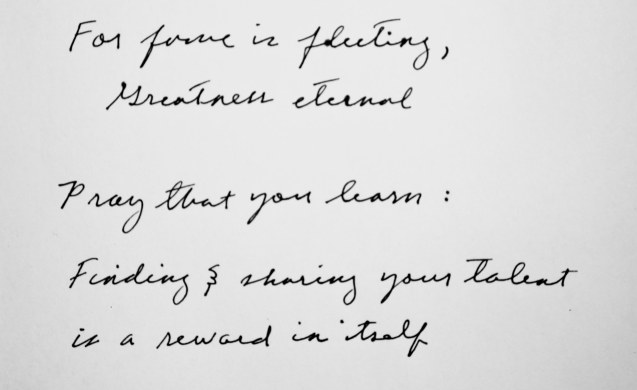 For fame is fleeting,
Greatness eternal
Pray that you learn :
Finding & sharing your talent
is a reward in itself